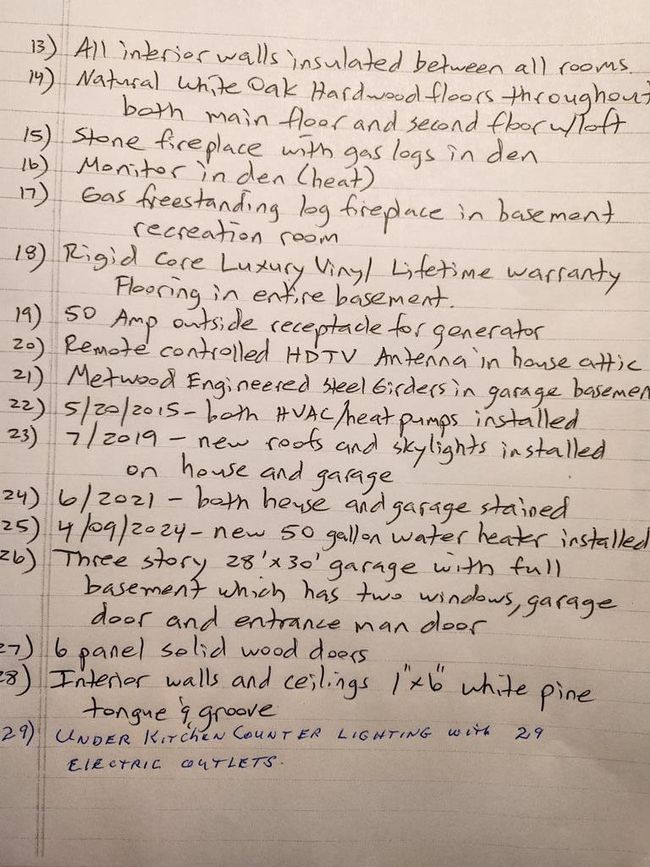 13) All interior walls insulated between all rooms.
14) Natural White Oak Hardwood floors throughout
both main floor and second floor w/loft
15) Stone fireplace with gas logs in den
16) Monitor in den (heat)
17) Gas freestanding log fireplace in basement
recreation room
18) Rigid Core Luxury Vinyl Lifetime warranty
Flooring in entire basement.
19) 50 Amp outside receptacle for generator
20) Remote controlled HDTV Antenna in house attic
21) Metwood Engineered Steel Girders in garage basemen
22) 5/20/2015 - both HVAC/heat pumps installed
23) 7/2019 - new roofs and skylights installed
on house and garage
24) 6/2021 - both house and garage stained
25) 4/09/2024 - new 50 gallon water heater installed
26) Three story 28'x30' garage with full
basement which has two windows, garage
door and entrance man door
27) 6 panel solid wood doors
28) Interior walls and ceilings 1"x6" white pine
tongue & groove
29) UNDER KITCHEN COUNTER LIGHTING with 29
ELECTRIC OUTLETS.